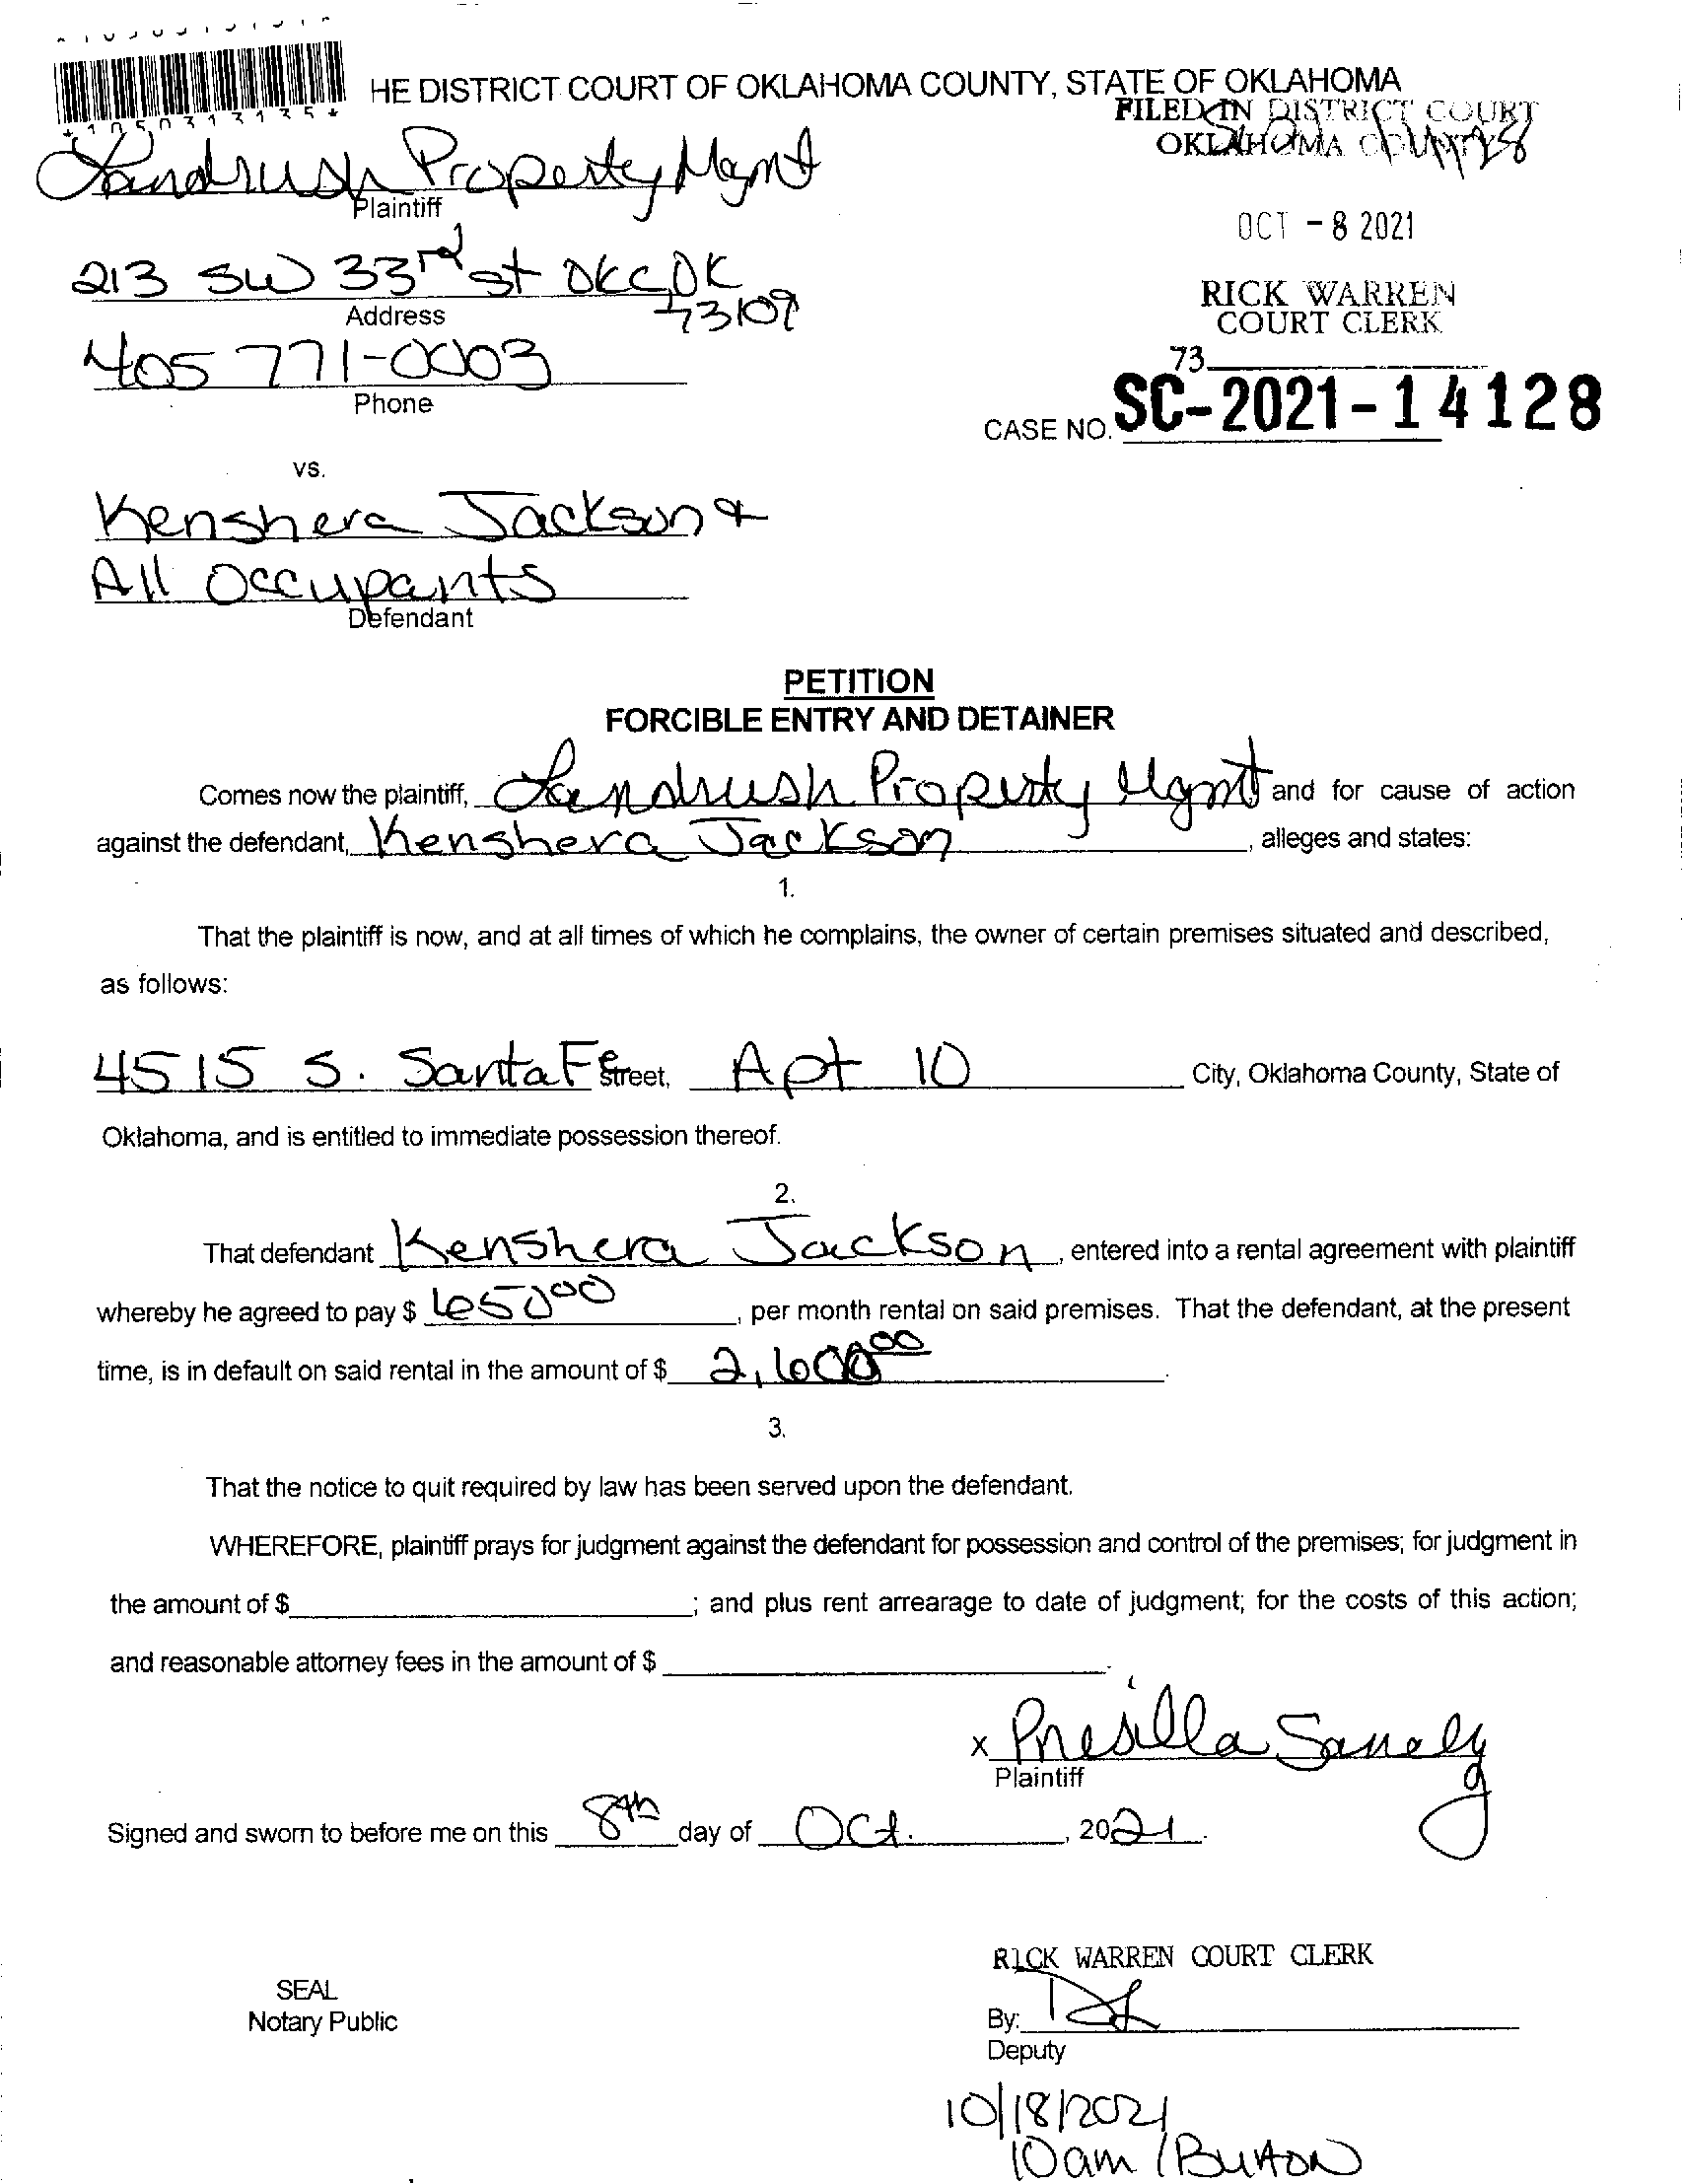 HE DISTRICT COURT OF OKLAHOMA COUNTY, STATE OF OKLAHOMA
FILED IN DISTRICT COURT
OKLAHOMA COUNTY
*1050313135*
Landrush Property Mgmt
Plaintiff
OCT - 8 2021
213 SW 33rd st OKC, OK
73109
Address
RICK WARREN
COURT CLERK
405 771-0003
Phone
73
CASE NO. SC-2021-14128
vs.
Kenshera Jackson &
All Occupants
Defendant
PETITION
FORCIBLE ENTRY AND DETAINER
Comes now the plaintiff, Landrush Property Mgmt and for cause of action
against the defendant, Kenshera Jackson, alleges and states:
1.
That the plaintiff is now, and at all times of which he complains, the owner of certain premises situated and described,
as follows:
4515 S. Santa Fe Street, Apt 10 City, Oklahoma County, State of
Oklahoma, and is entitled to immediate possession thereof.
2.
That defendant Kenshera Jackson, entered into a rental agreement with plaintiff
whereby he agreed to pay $ 650.00, per month rental on said premises. That the defendant, at the present
time, is in default on said rental in the amount of $ 2,600.00.
3.
That the notice to quit required by law has been served upon the defendant.
WHEREFORE, plaintiff prays for judgment against the defendant for possession and control of the premises; for judgment in
the amount of $ ; and plus rent arrearage to date of judgment; for the costs of this action;
and reasonable attorney fees in the amount of $ .
x Presilla
Plaintiff
Signed and sworn to before me on this 8th day of Oct., 2021.
RICK WARREN COURT CLERK
SEAL
Notary Public
By:
Deputy
10/18/2021
10am / Burton